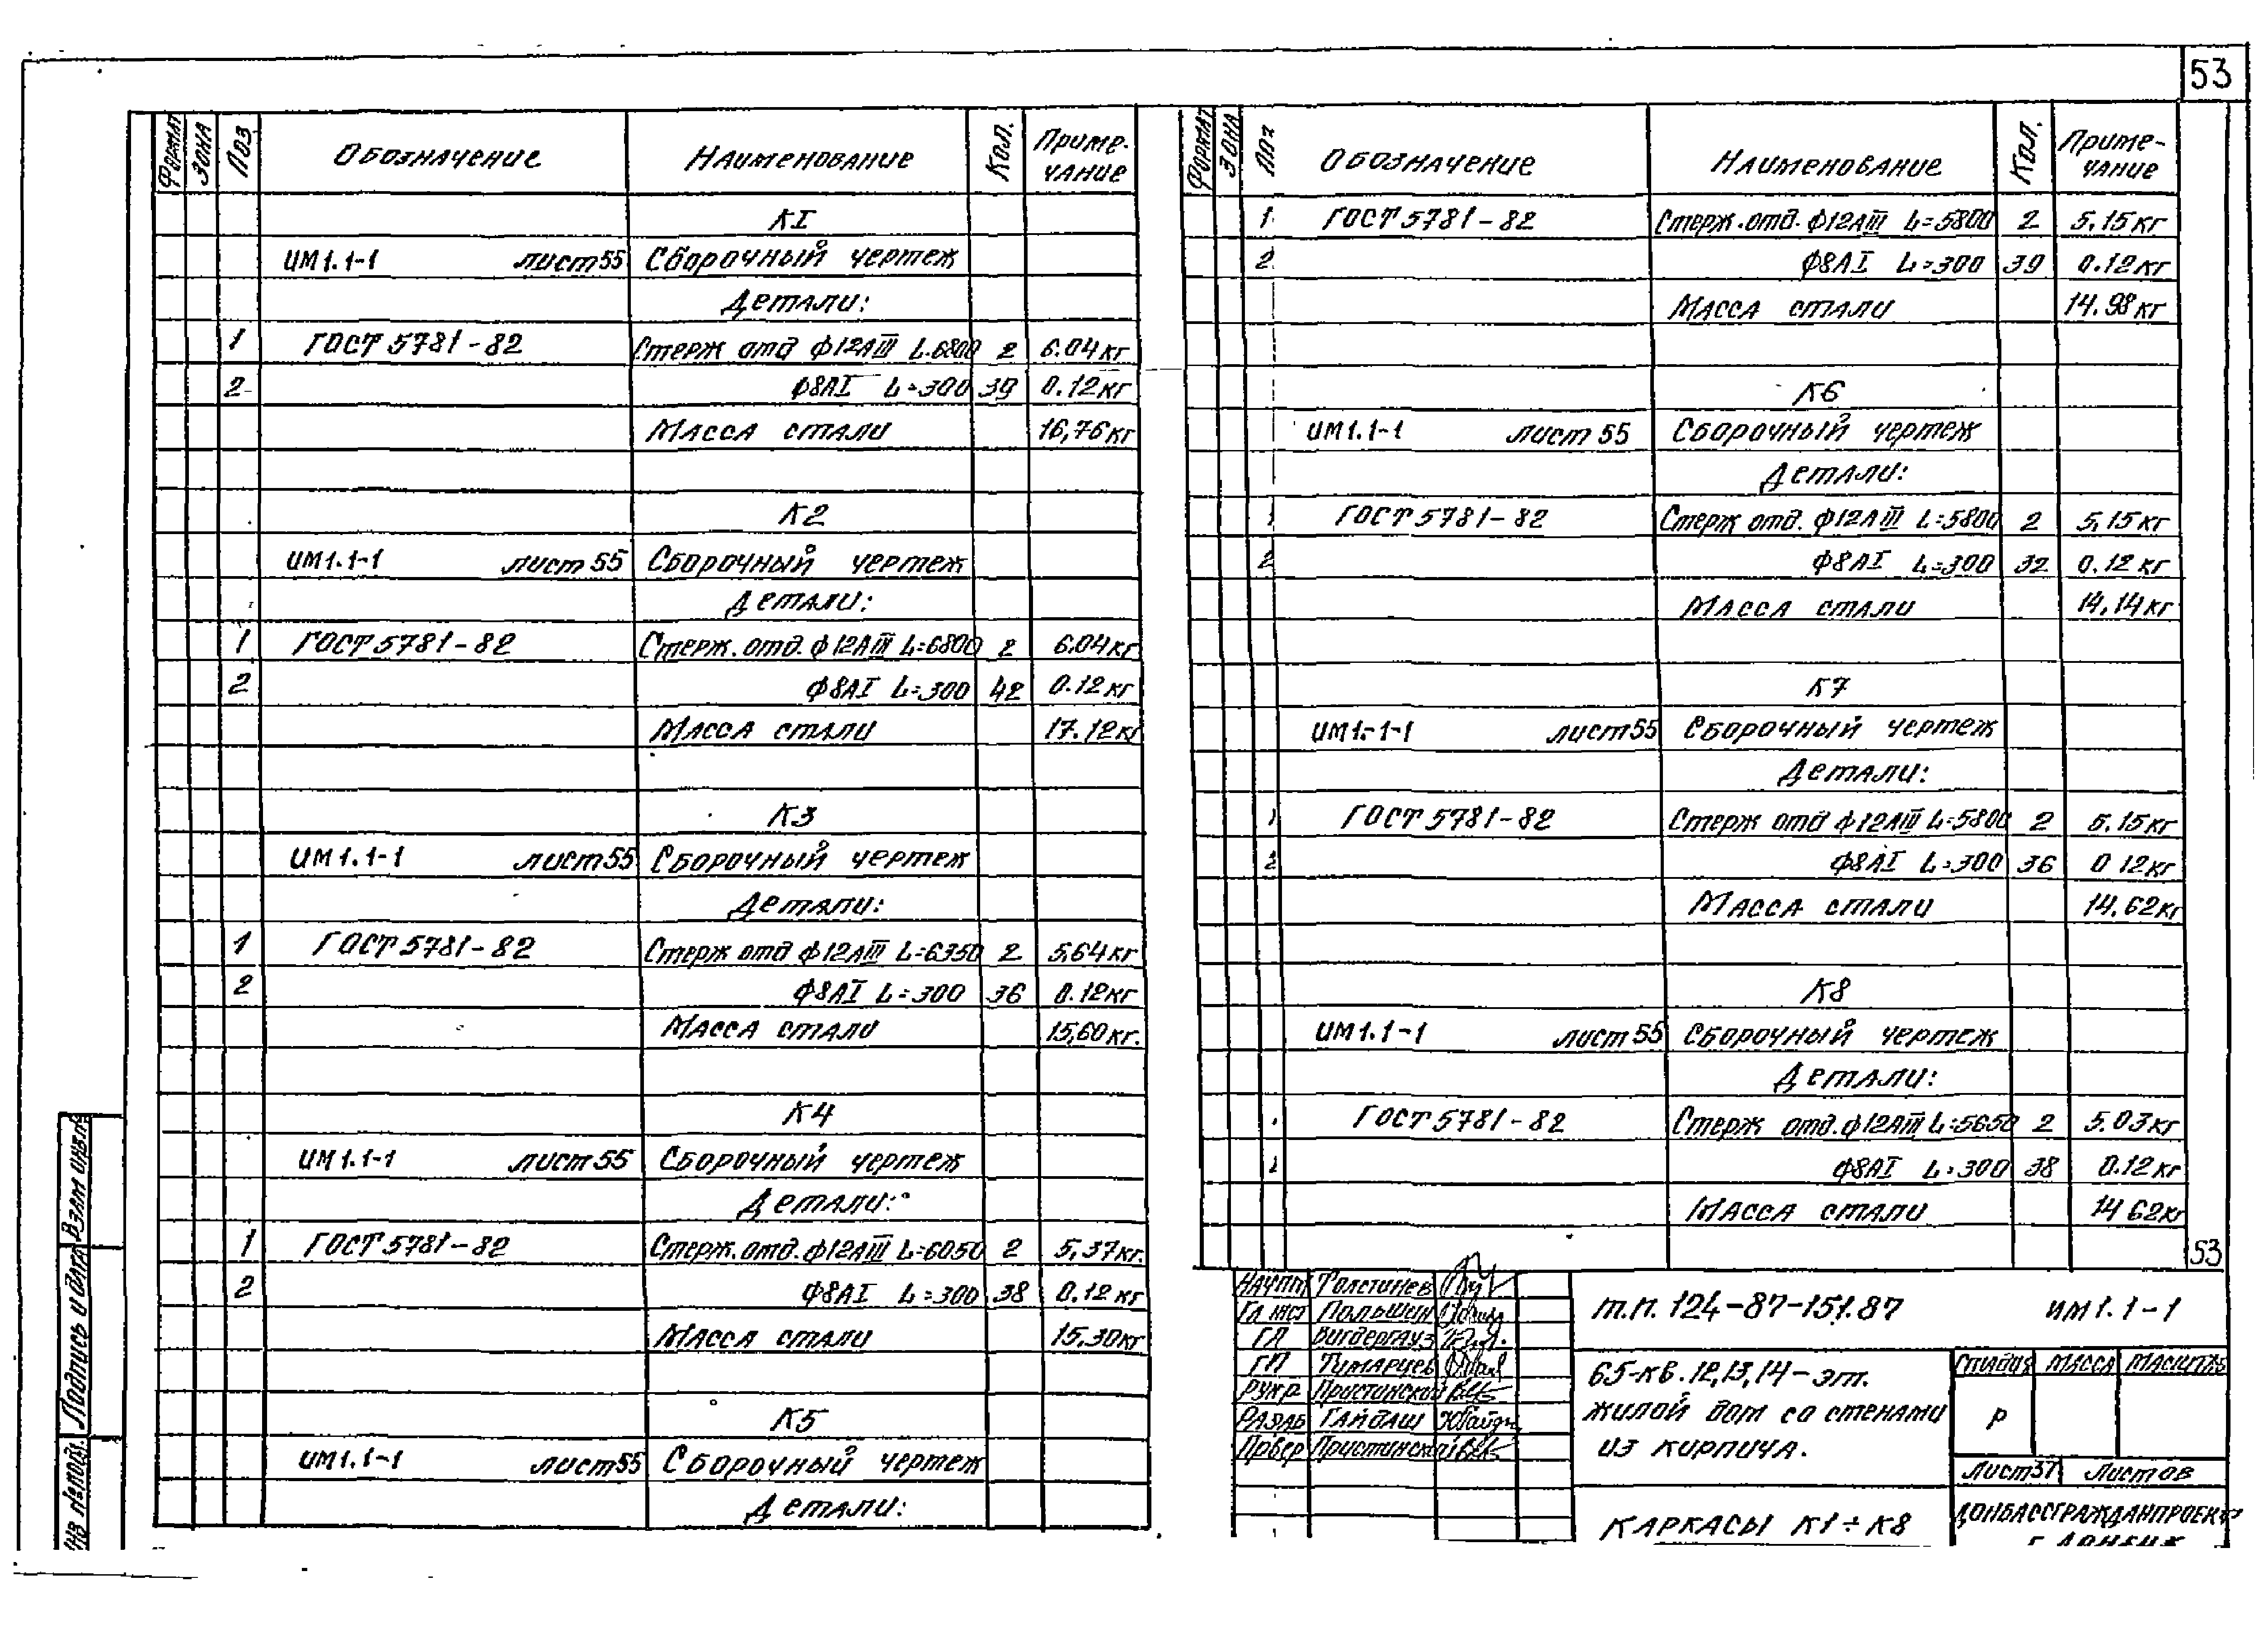 53
Формат Зона Поз Обозначение Наименование Кол. Приме-
чание
К1
ИМ1.1-1 лист 55 Сборочный чертеж
Детали:
1 ГОСТ 5781-82 Стерж отд ф12АIII L.6800 2 6.04кг
2 Ф8АI L=300 39 0.12кг
Масса стали 16,76кг
К2
ИМ1.1-1 лист 55 Сборочный чертеж
Детали:
1 ГОСТ 5781-82 Стерж. отд. ф12АIII L=6800 2 6.04кг
2 Ф8АI L=300 42 0.12кг
Масса стали 17.12кг
К3
ИМ1.1-1 лист 55 Сборочный чертеж
Детали:
1 ГОСТ 5781-82 Стерж отд ф12АIII L=6350 2 5,64кг
2 Ф8АI L=300 36 0.12кг
Масса стали 15,60кг.
К4
ИМ1.1-1 лист 55 Сборочный чертеж
Детали:
1 ГОСТ 5781-82 Стерж. отд. ф12АIII L=6050 2 5,37кг.
2 Ф8АI L=300 38 0.12кг
Масса стали 15,30кг
К5
ИМ1.1-1 лист 55 Сборочный чертеж
Детали:
Формат Зона Обозначение Наименование Кол. Приме-
чание
1 ГОСТ 5781-82 Стерж. отд. ф12АIII L=5800 2 5,15кг
2 Ф8АI L=300 39 0.12кг
Масса стали 14.98кг
К6
ИМ1.1-1 лист 55 Сборочный чертеж
Детали:
1 ГОСТ 5781-82 Стерж отд. ф12АIII L=5800 2 5,15кг
2 Ф8АI L=300 32 0.12кг
Масса стали 14,14кг
К7
ИМ1.-1-1 лист 55 Сборочный чертеж
Детали:
1 ГОСТ 5781-82 Стерж отд ф12АIII L=5800 2 5.15кг
2 Ф8АI L=300 36 0 12кг
Масса стали 14,62кг
К8
ИМ1.1-1 лист 55 Сборочный чертеж
Детали:
ГОСТ 5781-82 Стерж отд. ф12АIII L=5650 2 5.03кг
Ф8АI L=300 38 0.12кг
Масса стали 14 62кг
53
Толстинев
Польшин
ГП Тимарцев
Рук.р Пристинской
Разаб Гайдаш
Провер Пристинской
т.п. 124-87-151.87 ИМ1.1-1
65-кв. 12,13,14-эт.
жилой дом со стенами
из кирпича.
Стадия Масса Масштаб
Р
Лист 37 Листов
Каркасы К1÷К8
Донбассгражданпроект
Взам инв№
Подпись и дата
Инв № подл.